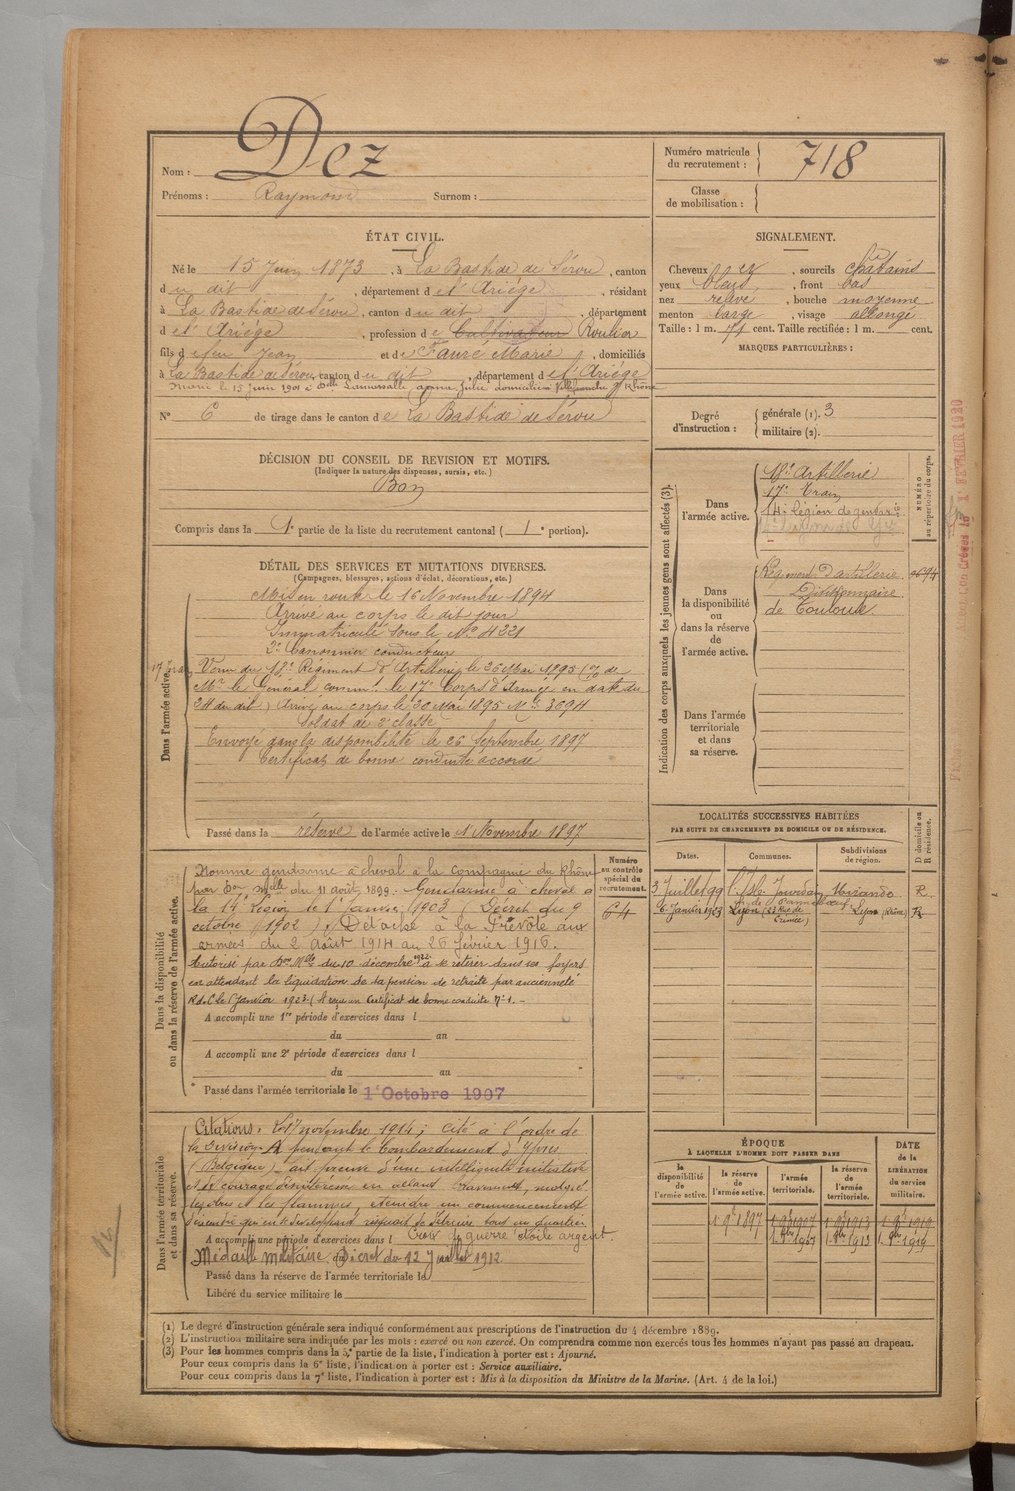 Nom : Dez
Prénoms : Raymond Surnom :
Numéro matricule du recrutement : 718
Classe de mobilisation :
ÉTAT CIVIL.
Né le 15 Juin 1873, à La Bastide de Sérou, canton
du dit, département de l'Ariège, résidant
à La Bastide de Sérou, canton du dit, département
de l'Ariège, profession de Cultivateur Roulier
fils de feu Jean et de Fauré Marie, domiciliés
à La Bastide de Sérou, canton du dit, département de l'Ariège
Marié le 15 Juin 1901 à Delle Julie domiciliée Rhône
N° 6 de tirage dans le canton de La Bastide de Sérou
SIGNALEMENT.
Cheveux et, sourcils chatains
yeux bleus, front bas
nez relevé, bouche moyenne
menton large, visage allongé
Taille : 1 m. 71 cent. Taille rectifiée : 1 m. cent.
MARQUES PARTICULIÈRES :
Degré d'instruction : générale (1). 3
militaire (2).
DÉCISION DU CONSEIL DE REVISION ET MOTIFS.
(Indiquer la nature des dispenses, sursis, etc.)
Bon
Compris dans la 1e partie de la liste du recrutement cantonal (1e portion).
DÉTAIL DES SERVICES ET MUTATIONS DIVERSES.
(Campagnes, blessures, actions d'éclat, décorations, etc.)
Dans l'armée active.
Mis en route le 16 Novembre 1894
Arrivé au corps le dit jour
Immatriculé sous le N° 4221
2e Canonnier conducteur
17e Train
Venu du 18e Régiment d'Artillerie le 26 Mai 1895 (% de
Mr le Général commt le 17e Corps d'Armée en date du
24 du dit) Arrivé au corps le 30 Mai 1895 N° 3694
Soldat de 2e classe
Envoyé dans la disponibilité le 26 Septembre 1897
Certificat de bonne conduite accordé
Passé dans la réserve de l'armée active le 1 Novembre 1897
Indication des corps auxquels les jeunes gens sont affectés (3).
Dans l'armée active.
18e Artillerie
17e Train
14e légion de gendrie
NUMÉRO au répertoire du corps.
Dans la disponibilité ou dans la réserve de l'armée active.
Régiment d'artillerie
Divisionnaire
de Toulouse
Dans l'armée territoriale et dans sa réserve.
LOCALITÉS SUCCESSIVES HABITÉES
PAR SUITE DE CHANGEMENTS DE DOMICILE OU DE RÉSIDENCE.
Dates. Communes. Subdivisions de région. D domicile ou R résidence.
3 Juillet 99 l'Isle Jourdain Mirande R
6 Janvier 1923 Lyon Lyon (Rhône) R
Dans la disponibilité ou dans la réserve de l'armée active.
Numéro au contrôle spécial du recrutement.
64
Nommé gendarme à cheval à la compagnie du Rhône
par Don Mlle du 11 août 1899. Gendarme à cheval à
la 14e Légion le 1er Janvier 1903 (Décret du 9
octobre 1902) Détaché à la Prévôté aux
armées du 2 Août 1914 au 26 février 1916.
Autorisé par Don Mlle du 10 décembre 1922 à se retirer dans ses foyers
en attendant la liquidation de sa pension de retraite par ancienneté
R.d.C. le 6 Janvier 1923. (A reçu un certificat de bonne conduite N° 1. -
A accompli une 1re période d'exercices dans l
du au
A accompli une 2e période d'exercices dans l
du au
Passé dans l'armée territoriale le 1er Octobre 1907
Dans l'armée territoriale et dans sa réserve.
Citations : Le 17 novembre 1914 ; cité à l'ordre de
la division. A pendant le bombardement d'Ypres
(Belgique) fait preuve d'une intelligente initiative
et de courage désintéressé en allant bravement, malgré
les obus et les flammes, éteindre un commencement
d'incendie qui en se développant risquait de détruire tout un quartier
A accompli une période d'exercices dans l
Croix de guerre étoile argent.
Médaille militaire, Décret du 12 Juillet 1912
Passé dans la réserve de l'armée territoriale le
Libéré du service militaire le
ÉPOQUE
À LAQUELLE L'HOMME DOIT PASSER DANS
la disponibilité de l'armée active. la réserve de l'armée active. l'armée territoriale. la réserve de l'armée territoriale. DATE de la LIBÉRATION du service militaire.
1 9bre 1897 1 9bre 1907 1 9bre 1913 1 9bre 1919
1 8bre 1907 1 8bre 1913 1 8bre 1919
(1) Le degré d'instruction générale sera indiqué conformément aux prescriptions de l'instruction du 4 décembre 1889.
(2) L'instruction militaire sera indiquée par les mots : exercé ou non exercé. On comprendra comme non exercés tous les hommes n'ayant pas passé au drapeau.
(3) Pour les hommes compris dans la 5e partie de la liste, l'indication à porter est : Ajourné.
Pour ceux compris dans la 6e liste, l'indication à porter est : Service auxiliaire.
Pour ceux compris dans la 7e liste, l'indication à porter est : Mis à la disposition du Ministre de la Marine. (Art. 4 de la loi.)